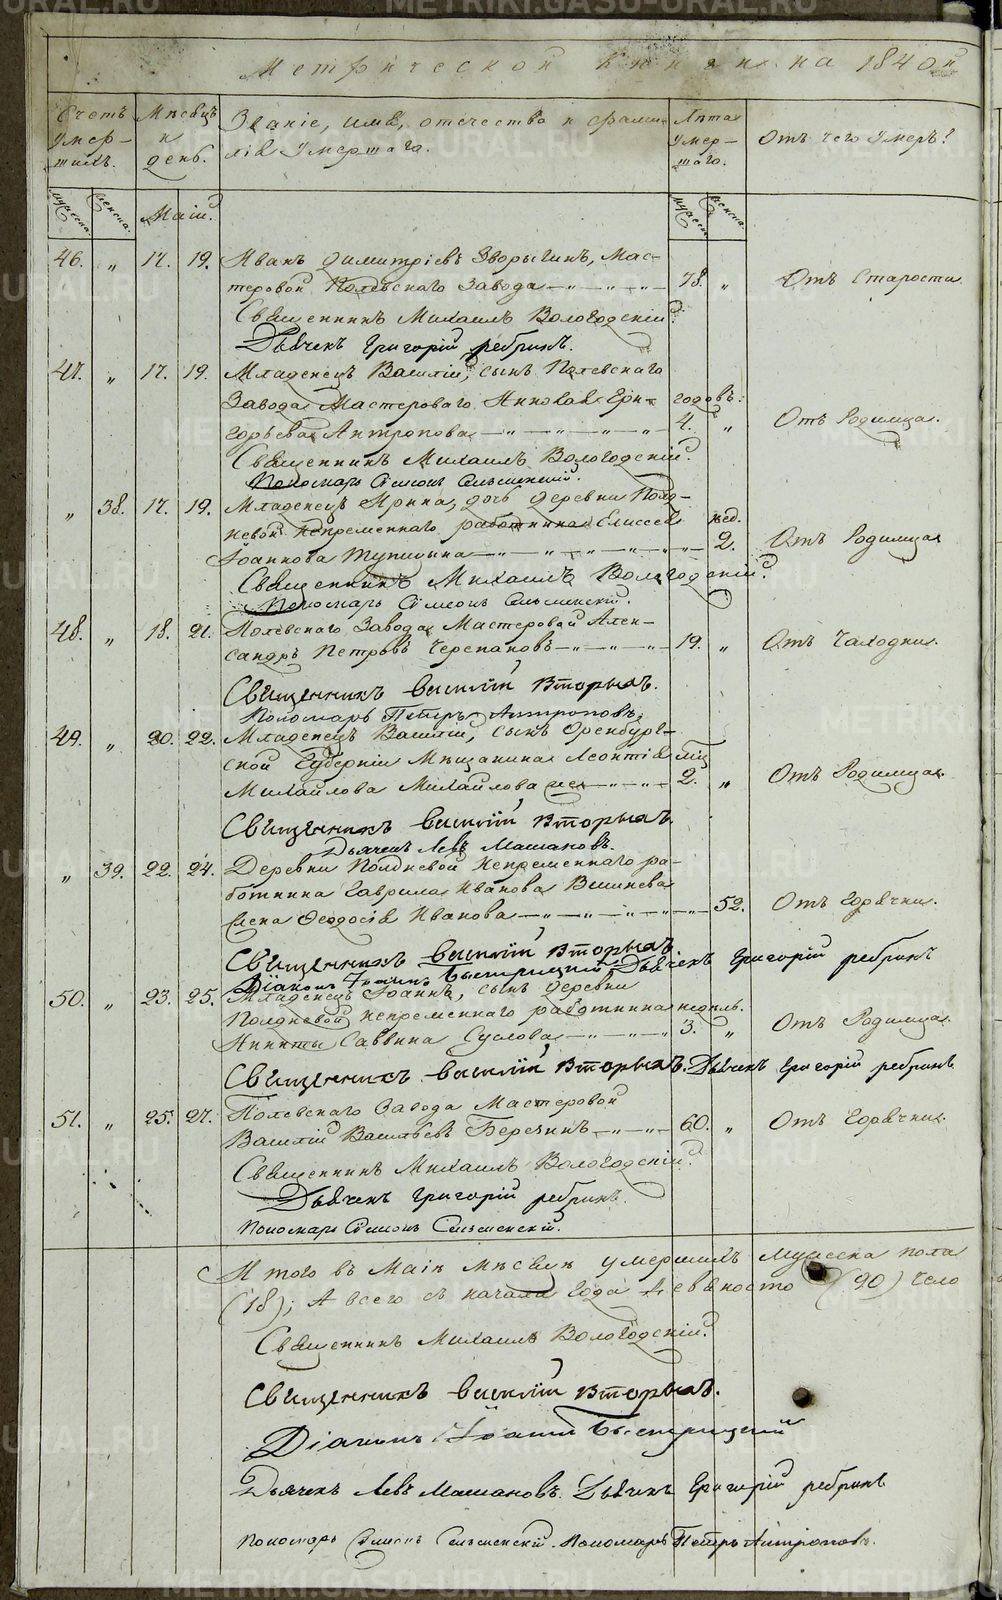 METRIKI.GASO-URAL.RU
Метрической книги на 1840й
Счетъ умер-шихъ. Мѣсяцъ и день. Званіе, имя, отечество и фами-лія умершаго. Лѣта умер-шаго. Отъ чего умеръ?
мужеска. женска. Маій. мужеск. женска.
46. „ 17. 19. Иванъ Димитріевъ Зворыгинъ, Мас-
теровой Полевскаго Завода 78. „ Отъ Старости
Священникъ Михаилъ Вологодскій.
Дьячекъ Григорій ребринъ.
47. „ 17. 19. Младенецъ Василій, сынъ Полевскаго
Завода Мастероваго Николая Гри- годовъ.
горьева Антропова 4. „ Отъ Родимца.
Священникъ Михаилъ Вологодскій.
Пономарь Симеонъ
„ 38. 17. 19. Младенецъ Ирина, дочь деревни Полд-
невой непременнаго работника Елисея нед.
Іоаннова Тупицына 2. Отъ Родимца
Священникъ Михаилъ Вологодскій.
Пономарь Симеонъ
48. „ 18. 21. Полевскаго Завода Мастеровой Алек-
сандръ Петровъ Черепановъ 19. „ Отъ Чаходки.
Священникъ Василій Вторыхъ.
Пономарь Петръ Антроповъ.
49. „ 20. 22. Младенецъ Василій, сынъ Оренбург-
ской Губерніи Мѣщанина Леонтія мѣц
Михайлова Михайлова 2. „ Отъ Родимца.
Священникъ Василій Вторыхъ.
Дьячекъ Левъ Машановъ.
„ 39. 22. 24. Деревни Полдневой Непременнаго ра-
ботника Гаврила Иванова Вишнева
жена Феодосія Иванова 52. Отъ Горячки.
Священникъ Василій Вторыхъ.
Діаконъ Іоаннъ Быстрицкій Дьячекъ Григорій ребринъ
50. „ 23. 25. Младенецъ Іоаннъ, сынъ Деревни
Полдневой непременнаго работника недѣль.
Никиты Саввина Суслова 3. „ Отъ Родимца.
Священникъ Василій Вторыхъ. Дьячекъ Григорій ребринъ
51. „ 25. 27. Полевскаго Завода Мастеровой
Василій Васильевъ Березинъ 60. „ Отъ Горячки.
Священникъ Михаилъ Вологодскій.
Дьячекъ Григорій ребринъ
Пономарь Симеонъ
Итого въ Маіи Мѣсяцѣ умершихъ мужеска пола
(18); А всего съ начала года девяносто (90) чело
Священникъ Михаилъ Вологодскій.
Священникъ Василій Вторыхъ.
Діаконъ Іоаннъ Быстрицкій
Дьячекъ Левъ Машановъ. Дьячекъ Григорій ребринъ
Пономарь Симеонъ Пономарь Петръ Антроповъ.